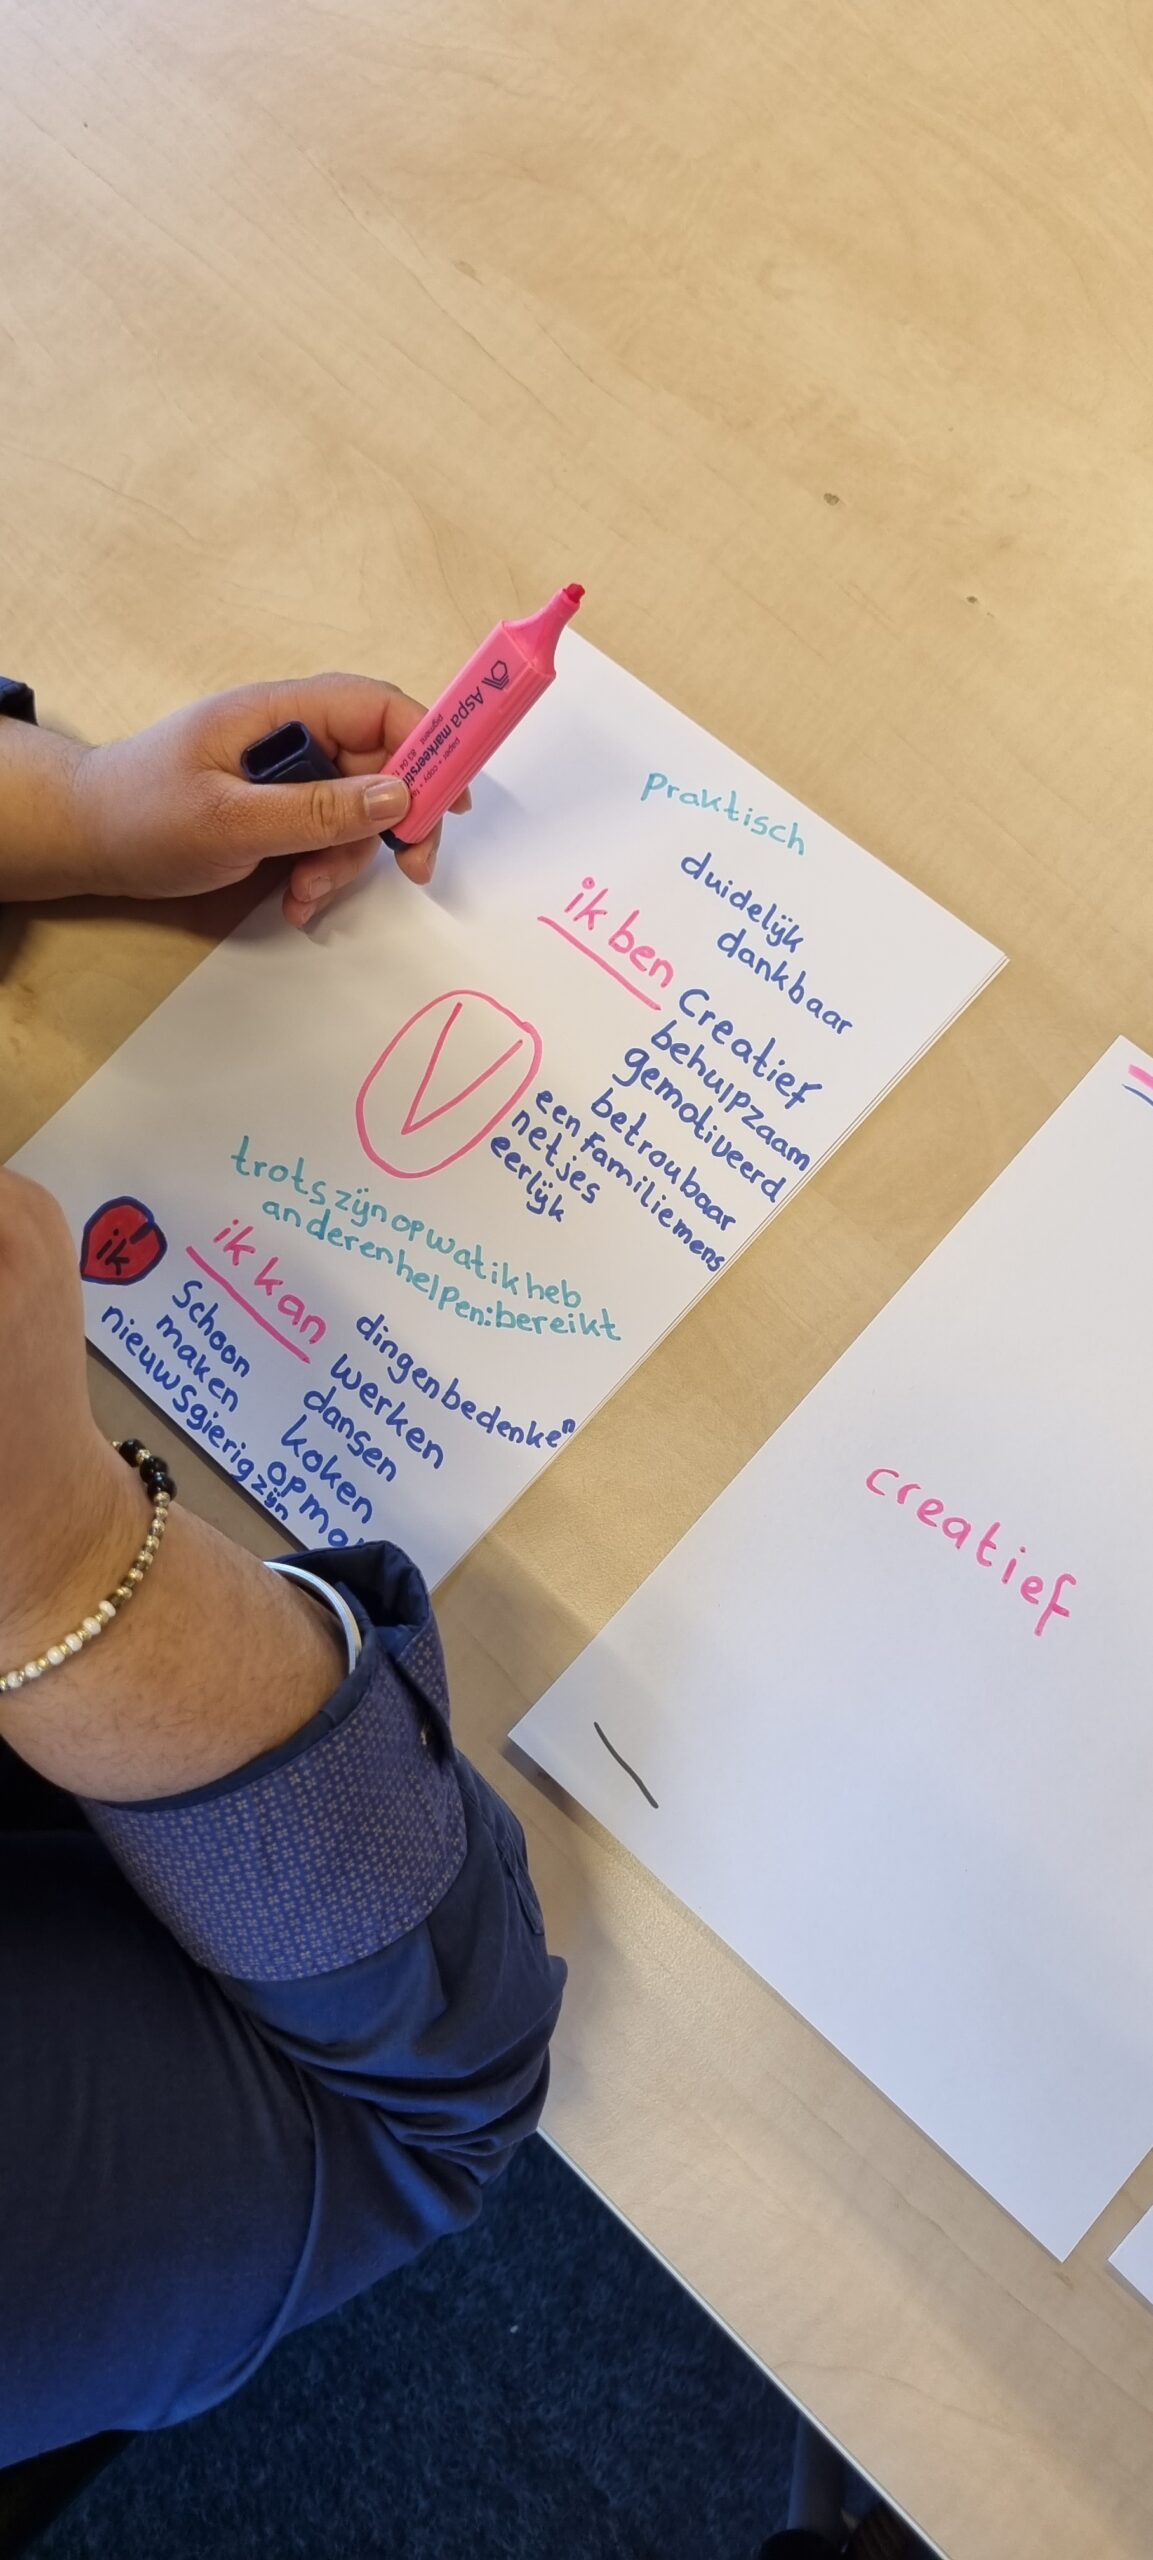 Aspa markeerstif
paper + copy + fa
pigment 83 04 1
praktisch
duidelijk
dankbaar
ik ben
Creatief
behulpzaam
gemotiveerd
betroubaar
een familiemens
netjes
eerlijk
V
trots zijn op wat ik heb
anderen helpen: bereikt
ik
ik kan
dingen bedenken
werken
dansen
koken
Schoon
maken
nieuwsgierig zijn
creatief